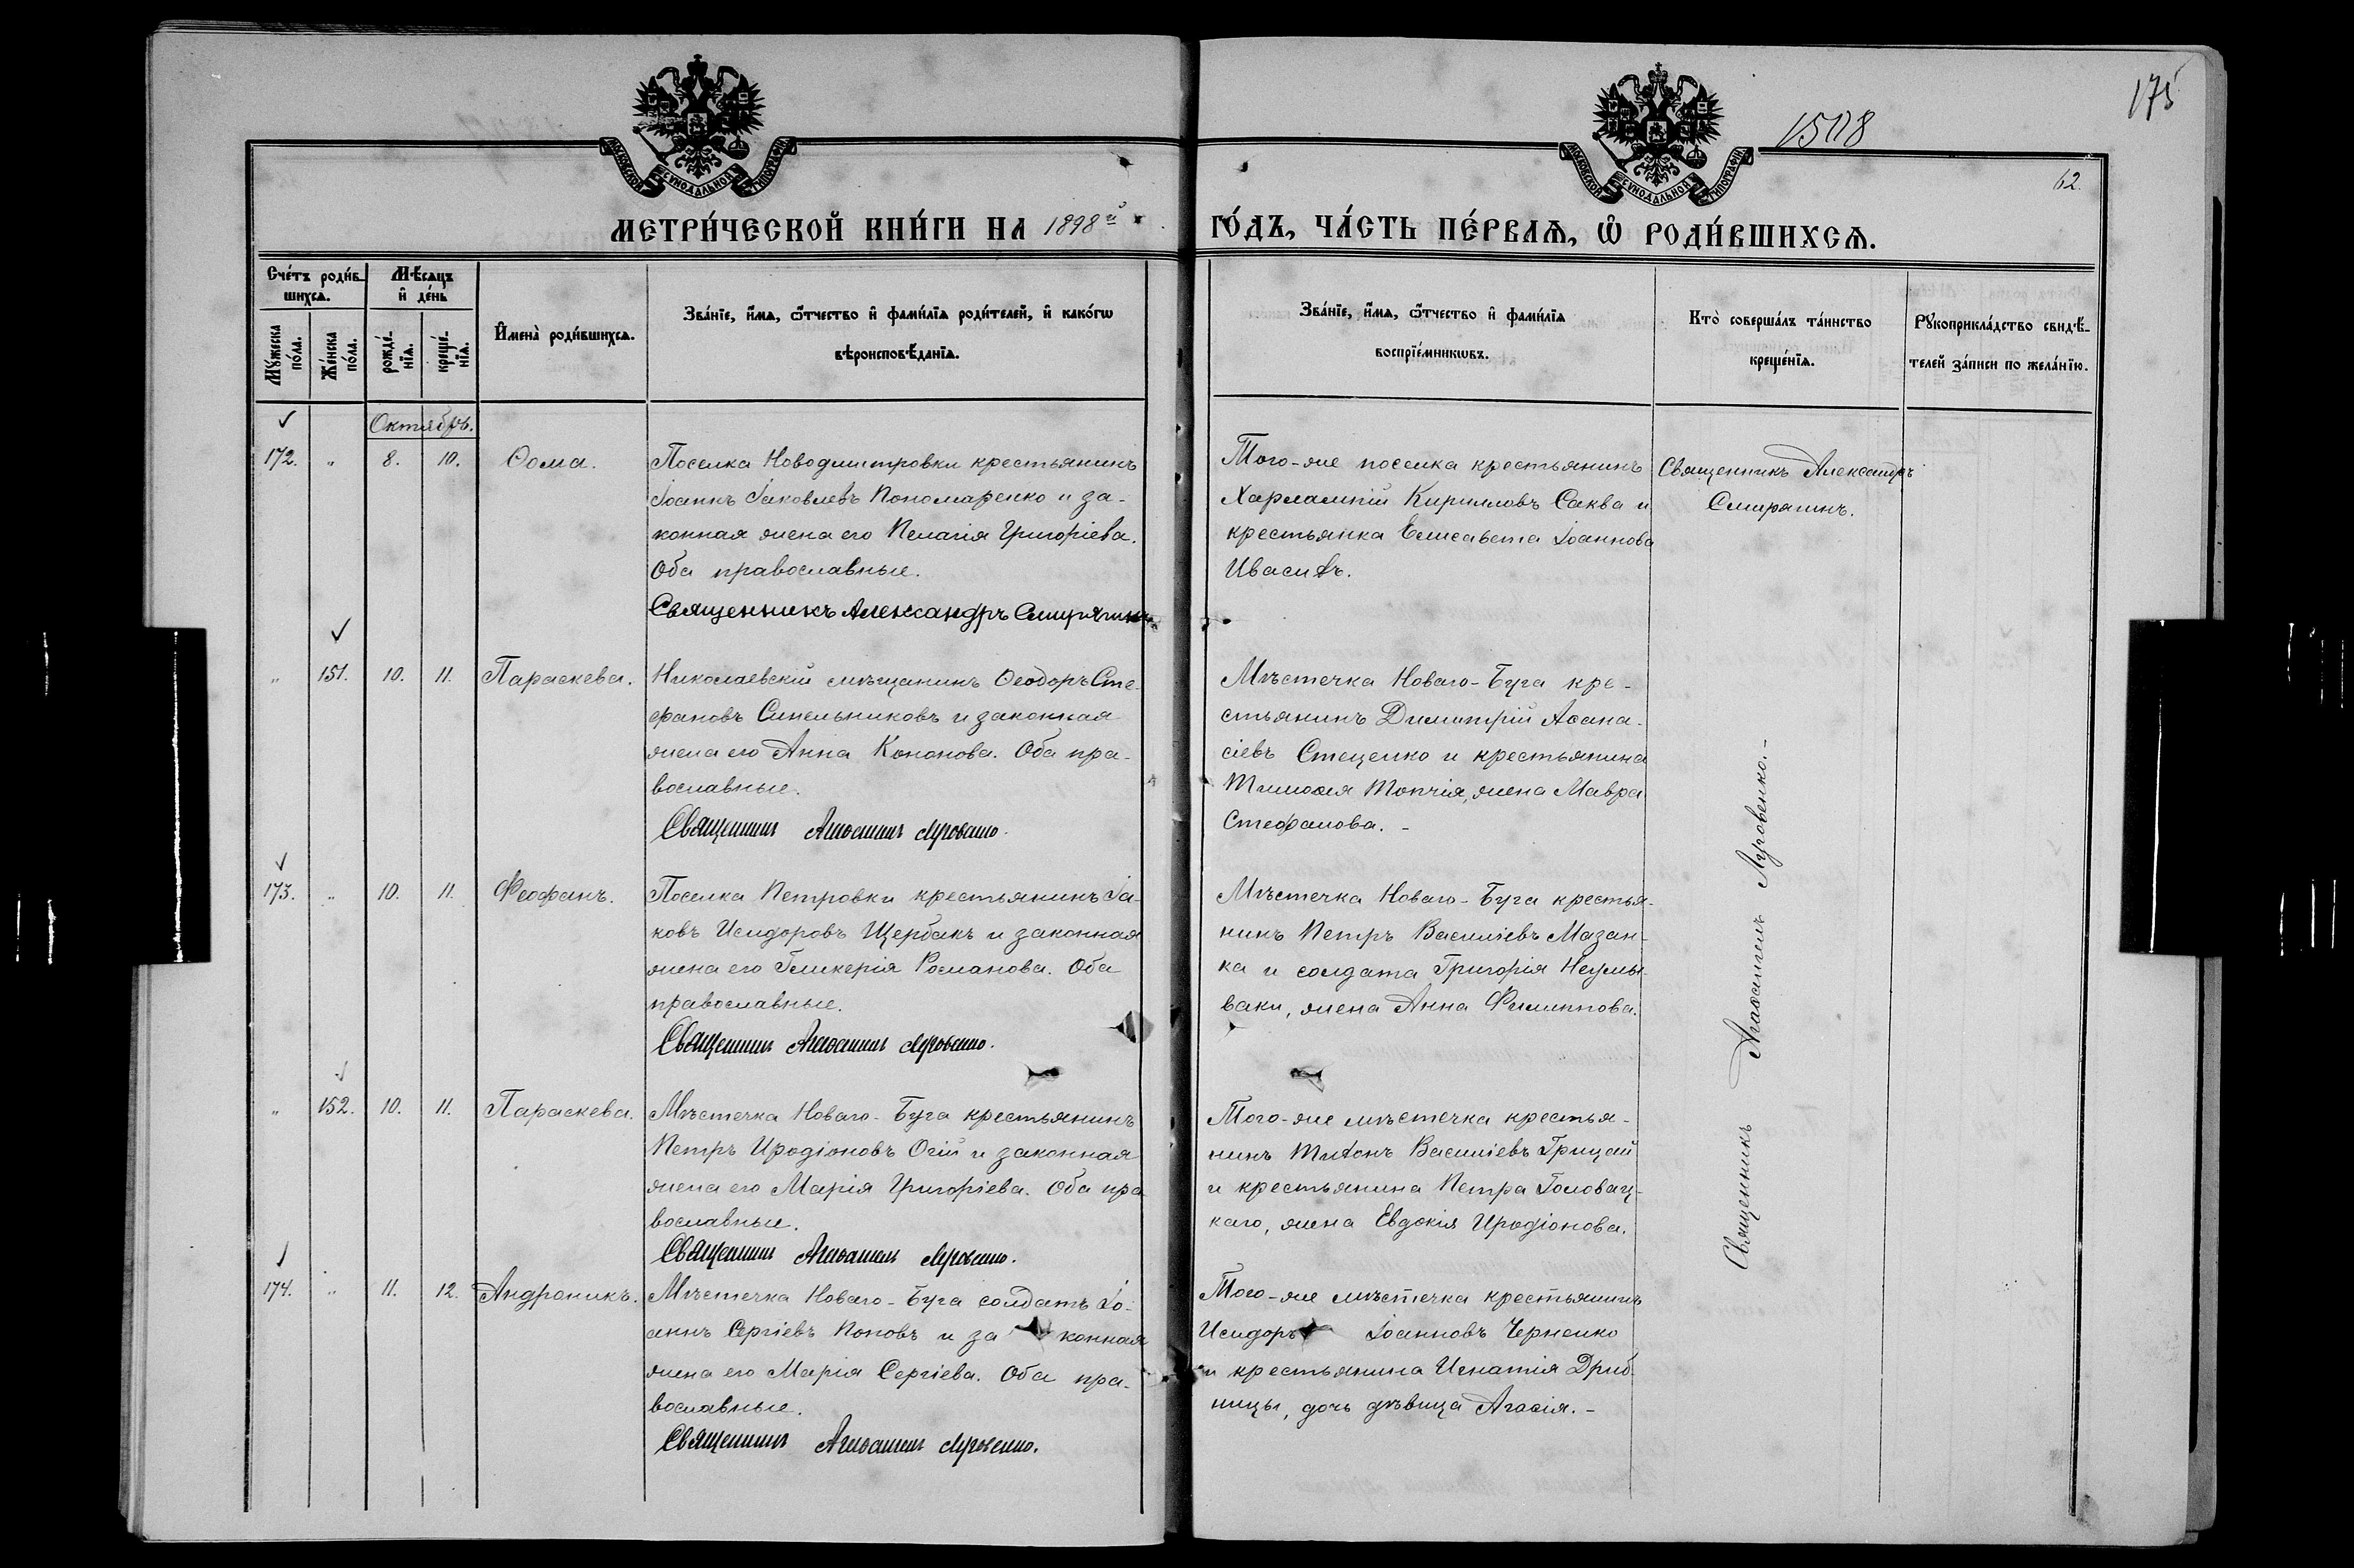 175
1508
62.
МОСКОВСКОЙ СѴНОДАЛЬНОЙ ТИПОГРАФІИ
МОСКОВСКОЙ СѴНОДАЛЬНОЙ ТИПОГРАФІИ
МЕТРИ́ЧЕСКОЙ КНИ́ГИ НА 1898й
ГО́ДЪ, ЧА́СТЬ ПЕ́РВАѦ, Ѡ҆ РОДИ́ВШИХСѦ.
Сче́тъ роди́в-
шихсѧ.
Мꙋ́жеска по́ла.
Же́нска по́ла.
Мѣ́сѧцъ
и҆ де́нь
рожде́-
нїѧ.
креще́-
нїѧ.
И҆мена̀ роди́вшихсѧ.
Зва́нїе, и҆́мѧ, ѻ҆́тчество и҆ фами́лїѧ роди́телей, и҆ како́гѡ
вѣроисповѣ́данїѧ.
Зва́нїе, и҆́мѧ, ѻ҆́тчество и҆ фами́лїѧ
воспрїе́мникѡвъ.
Кто̀ соверша́лъ та́инство
креще́нїѧ.
Рꙋкоприкла́дство свидѣ́-
телей за́писи по жела́нїю.
Октябрь.
172. " 8. 10. Ѳома.
Поселка Новодмитровки крестьянинъ
Іоаннъ Іаковлевъ Пономаренко и за-
конная жена его Пелагія Григоріева.
Оба православные.
Священникъ Александръ Смирягинъ
Того-же поселка крестьянинъ
Харлампій Кирилловъ Саква и
крестьянка Елисавета Іоаннова
Ивасивъ.
Священникъ Александръ
Смирягинъ.
" 151. 10. 11. Параскева.
Николаевскій мѣщанинъ Ѳеодоръ Сте-
фановъ Синельниковъ и законная
жена его Анна Кононова. Оба пра-
вославные.
Священникъ Агаѳангелъ Луговенко.
Мѣстечка Новаго-Буга кре-
стьянинъ Димитрій Аѳана-
сіевъ Стеценко и крестьянина
Тимоѳея Топчія, жена Мавра
Стефанова. -
173. " 10. 11. Феофанъ.
Поселка Петровки крестьянинъ Іа-
ковъ Исидоровъ Щербакъ и законная
жена его Гликерія Романова. Оба
православные.
Священникъ Агаѳангелъ Луговенко.
Мѣстечка Новаго-Буга крестья-
нинъ Петръ Василіевъ Мазан-
ка и солдата Григорія Неумы-
ваки, жена Анна Филиппова.
" 152. 10. 11. Параскева.
Мѣстечка Новаго-Буга крестьянинъ
Петръ Иродіоновъ Огій и законная
жена его Марія Григоріева. Оба пра-
вославные.
Священникъ Агаѳангелъ Луговенко.
Того-же мѣстечка крестья-
нинъ Тихонъ Василіевъ Грицай
и крестьянина Петра Головац-
каго, жена Евдокія Иродіонова.
174. " 11. 12. Андроникъ.
Мѣстечка Новаго-Буга солдатъ Іо-
аннъ Сергіевъ Поповъ и законная
жена его Марія Сергіева. Оба пра-
вославные.
Священникъ Агаѳангелъ Луговенко.
Того-же мѣстечка крестьянинъ
Исидоръ Іоанновъ Черненко
и крестьянина Игнатія Дриб-
ницы, дочь дѣвица Агаѳія. -
Священникъ Агаѳангелъ Луговенко. -